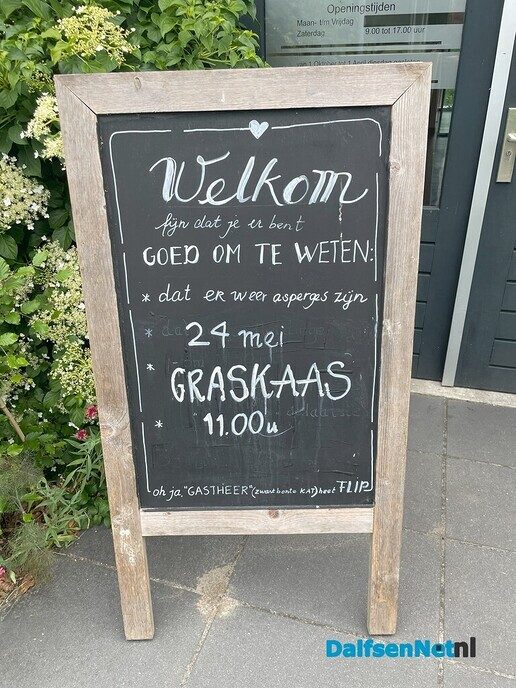 Openingstijden
Maan- t/m Vrijdag
Zaterdag 9.00 tot 17.00 uur
Welkom
fijn dat je er bent
GOED OM TE WETEN:
* dat er weer asperges zijn
* 24 mei
* GRASKAAS
* 11.00u
oh ja, "GASTHEER" (zwart bonte KAT) heet FLIP
DalfsenNet.nl